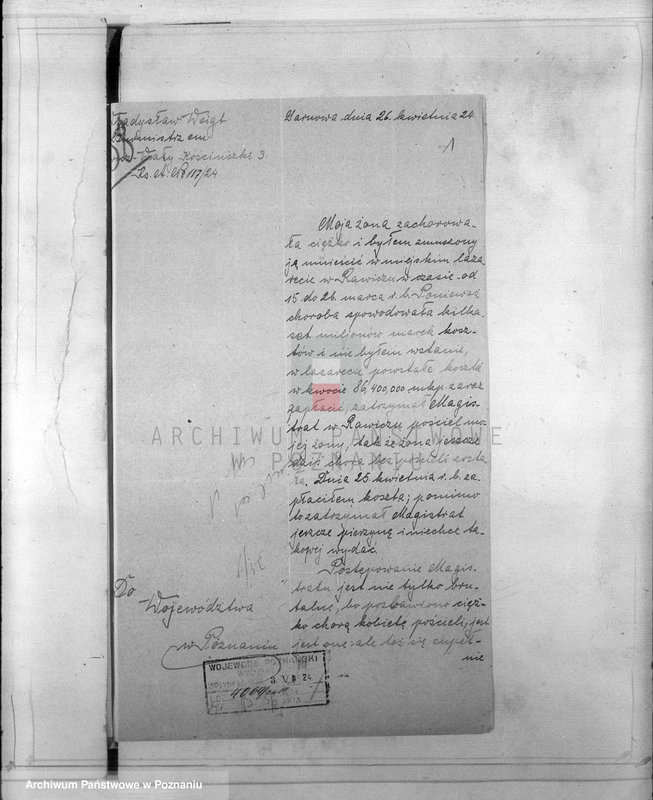 Władysław Weigt
Sarnowa dnia 26. kwietnia 24.
1
Wały Kościuszki 3.
Ks. et. № 117/24
Moja żona zachorowa-
ła ciężko i byłem zmuszony
ją umieścić w miejskim laza
recie w Rawiczu w czasie od
15 do 26. marca r. b. Ponieważ
choroba spowodowała kilka
set miljonów marek kosz-
tów i nie byłem wstanie,
w lazarecie powstałe koszta
w kwocie 86,400,000 mkp. zaraz
zapłacić, zatrzymał Magis-
trat w Rawiczu pościel mo
jej żony, tak że żona jeszcze
dziś chora bez pościeli zosta
ła. Dnia 25. kwietnia r. b. za-
płaciłem koszta; pomimo
to zatrzymał Magistrat
jeszcze pierzynę i niechce ta-
kowej wydać.
Postępowanie Magis-
tratu jest nie tylko bru-
talne, bo pozbawiono cięż-
ko chorą kobietę pościeli, jest
jest one ale też się zupeł-
nie
Do
Województwa
w Poznaniu
WOJEWODA POZNAŃSKI
3. V. 24
ARCHIWUM PAŃSTWOWE
W POZNANIU
Archiwum Państwowe w Poznaniu